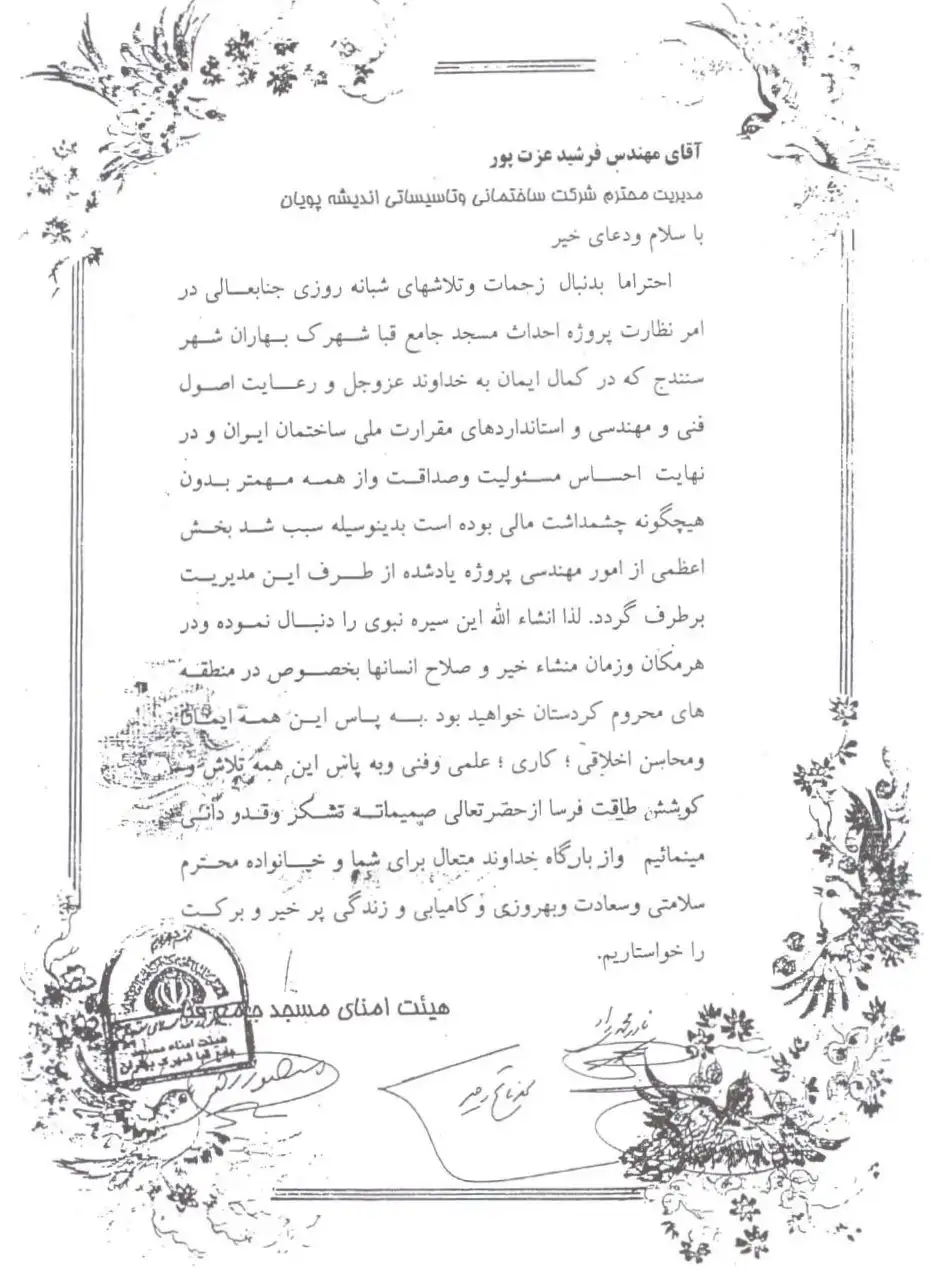 آقای مهندس فرشید عزت پور
مدیریت محترم شرکت ساختمانی وتاسیساتی اندیشه پویان
با سلام ودعای خیر
احتراما بدنبال زحمات وتلاشهای شبانه روزی جنابعالی در
امر نظارت پروژه احداث مسجد جامع قبا شهرک بهاران شهر
سنندج که در کمال ایمان به خداوند عزوجل و رعایت اصول
فنی و مهندسی و استانداردهای مقرارت ملی ساختمان ایران و در
نهایت احساس مسئولیت وصداقت واز همه مهمتر بدون
هیچگونه چشمداشت مالی بوده است بدینوسیله سبب شد بخش
اعظمی از امور مهندسی پروژه یادشده از طرف این مدیریت
برطرف گردد. لذا انشاء الله این سیره نبوی را دنبال نموده ودر
هرمکان وزمان منشاء خیر و صلاح انسانها بخصوص در منطقه
های محروم کردستان خواهید بود .به پاس این همه
ومحاسن اخلاقی ؛ کاری ؛ علمی وفنی وبه پاس این همه تلاش و
کوشش طاقت فرسا ازحضرتعالی صمیمانه تشکر وقدو دانی
مینمائیم واز بارگاه خداوند متعال برای شما و خانواده محترم
سلامتی وسعادت وبهروزی وکامیابی و زندگی پر خیر و برکت
را خواستاریم.
هیئت امنای مسجد جامع قبا
هیئت امناء مسجد
جامع قبا شهرک بهاران